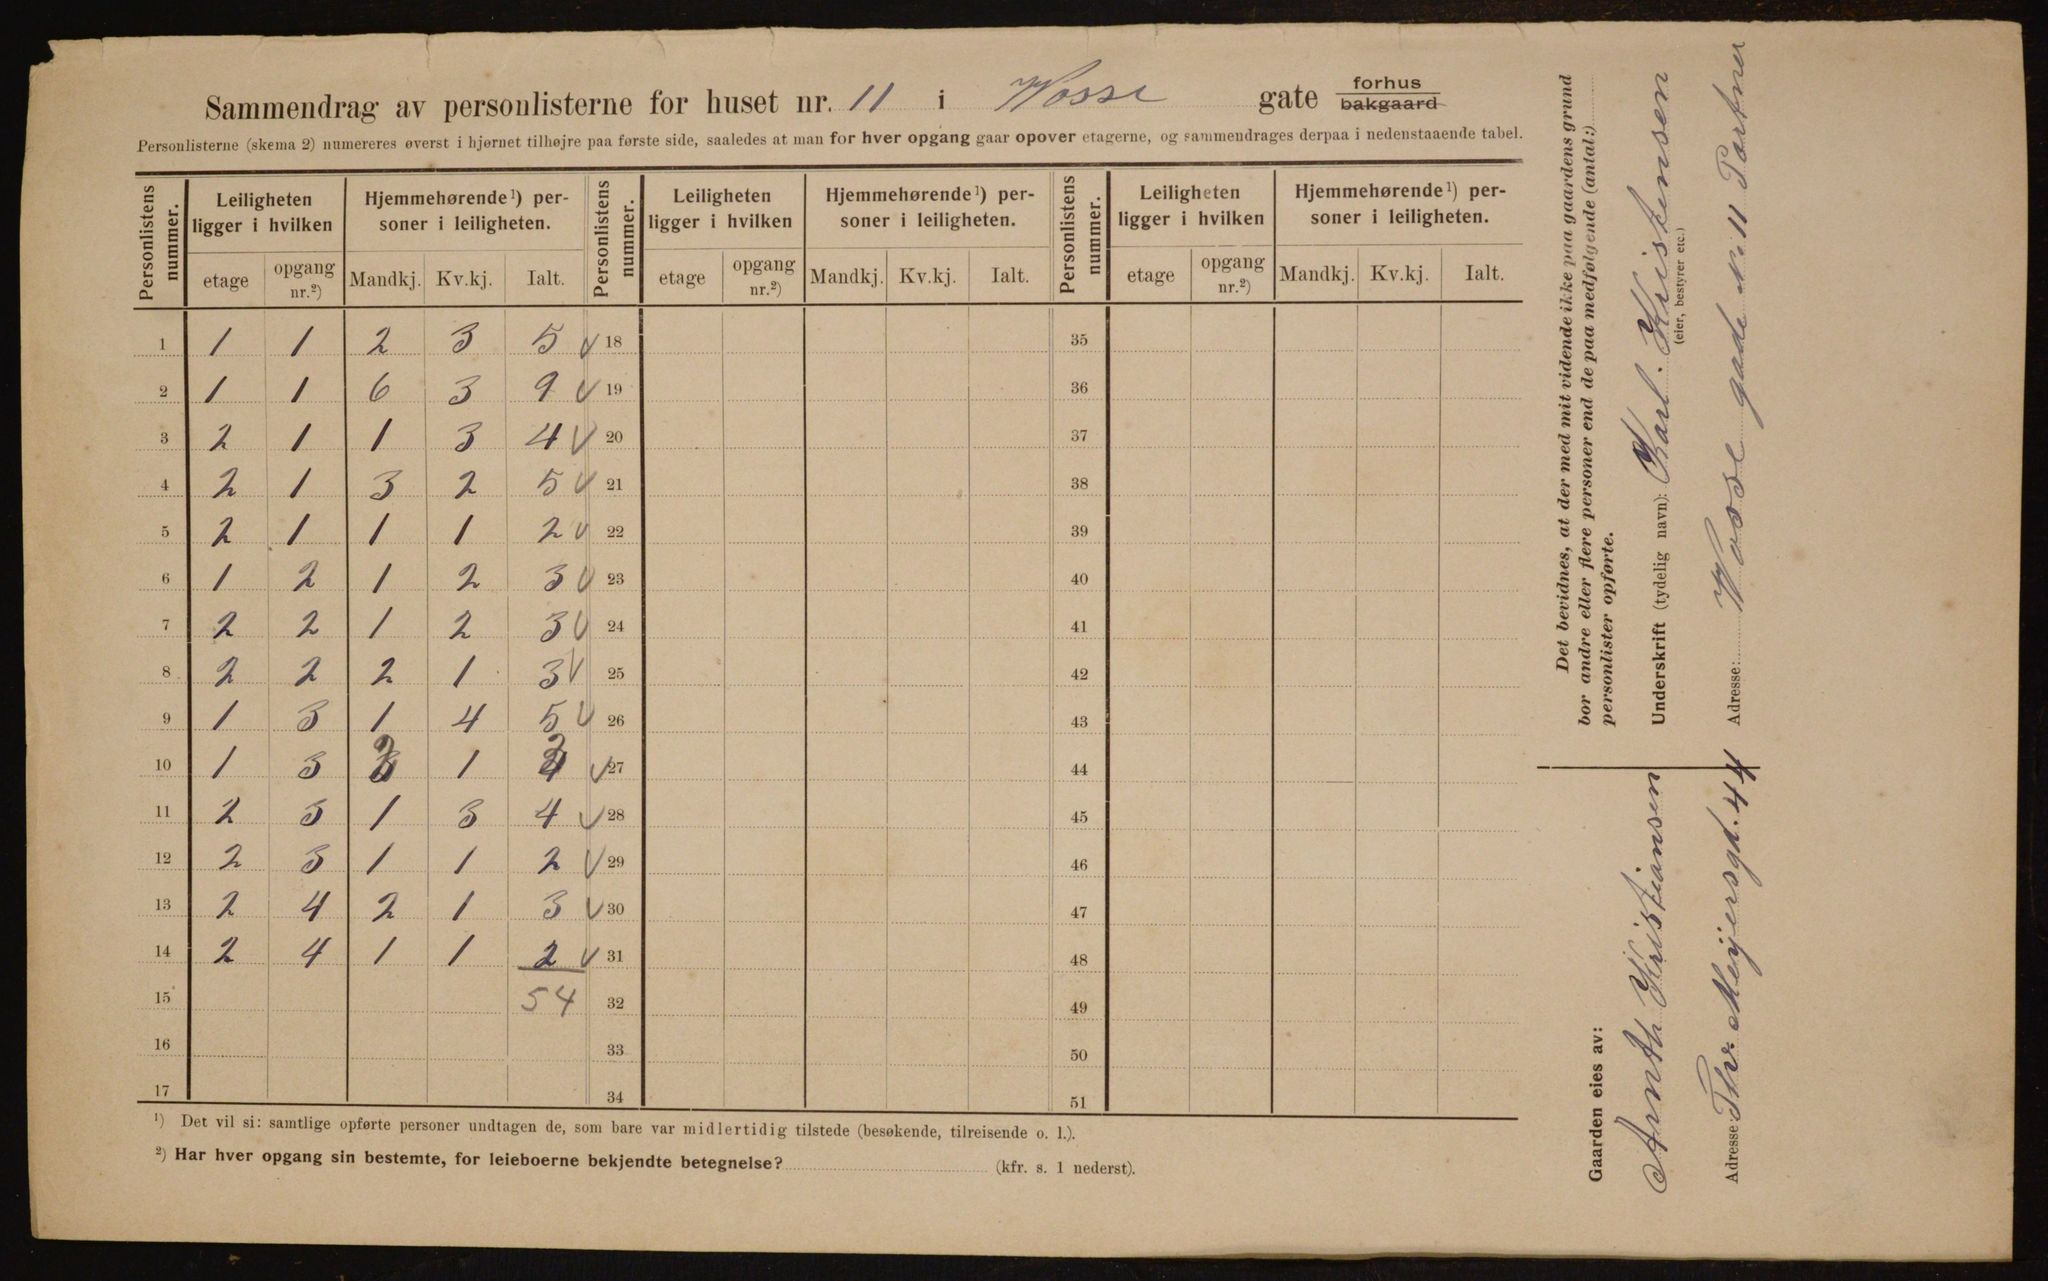 Sammendrag av personlisterne for huset nr. 11 i Vosse gate forhus bakgaard
Personlisterne (skema 2) numereres øverst i hjørnet tilhøjre paa første side, saaledes at man for hver opgang gaar opover etagerne, og sammendrages derpaa i nedenstaaende tabel.
Personlistens nummer. Leiligheten ligger i hvilken Hjemmehørende ¹) personer i leiligheten. Personlistens nummer. Leiligheten ligger i hvilken Hjemmehørende ¹) personer i leiligheten. Personlistens nummer. Leiligheten ligger i hvilken Hjemmehørende ¹) personer i leiligheten.
etage opgang nr.²) Mandkj. Kv.kj. Ialt. etage opgang nr.²) Mandkj. Kv.kj. Ialt. etage opgang nr.²) Mandkj. Kv.kj. Ialt.
1 1 1 2 3 5 √ 18 35
2 1 1 6 3 9 √ 19 36
3 2 1 1 3 4 √ 20 37
4 2 1 3 2 5 √ 21 38
5 2 1 1 1 2 √ 22 39
6 1 2 1 2 3 √ 23 40
7 2 2 1 2 3 √ 24 41
8 2 2 2 1 3 √ 25 42
9 1 3 1 4 5 √ 26 43
10 1 3 1 √ 27 44
11 2 3 1 3 4 √ 28 45
12 2 3 1 1 2 √ 29 46
13 2 4 2 1 3 √ 30 47
14 2 4 1 1 2 √ 31 48
15 54 32 49
16 33 50
17 34 51
¹) Det vil si: samtlige opførte personer undtagen de, som bare var midlertidig tilstede (besøkende, tilreisende o. l.).
²) Har hver opgang sin bestemte, for leieboerne bekjendte betegnelse? (kfr. s. 1 nederst).
Det bevidnes, at der med mit vidende ikke paa gaardens grund
bor andre eller flere personer end de paa medfølgende (antal:)
personlister opførte.
Underskrift (tydelig navn): Karl. Kristensen
(eier, bestyrer etc.)
Adresse: Vosse gade No 11 Portner
Gaarden eies av:
Arnth Kristiansen
Adresse: Thv. Meijersgd. 44